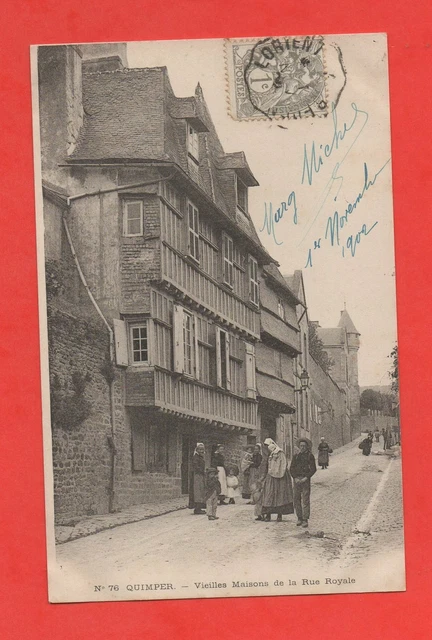 LORIENT
POSTES
1c
Marg Miches
1er Novembre
1902
Nº 76 QUIMPER. — Vieilles Maisons de la Rue Royale